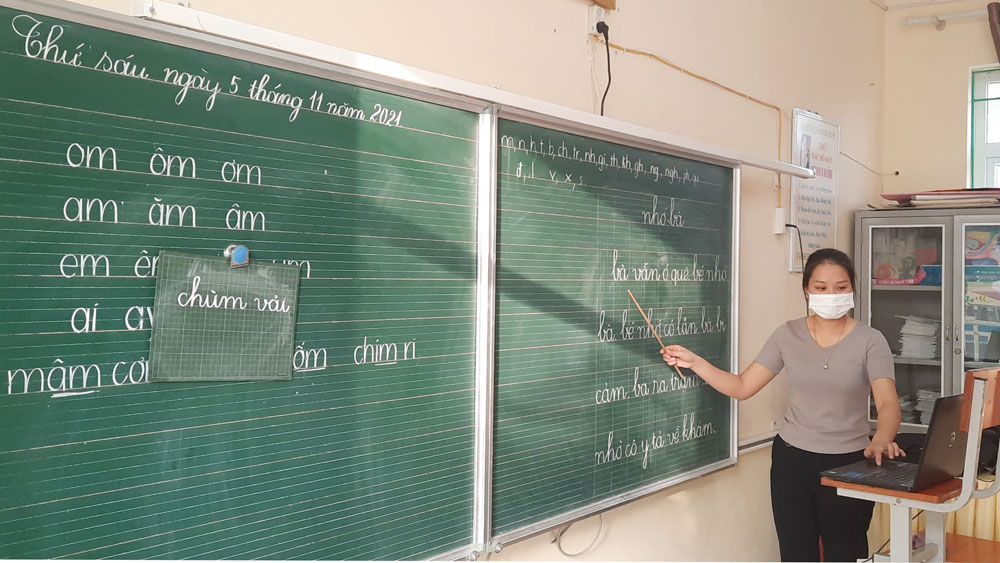 Thứ sáu ngày 5 tháng 11 năm 2021
om ôm ơm
am ăm âm
em
chùm vải
mâm chim ri
m, n, h, t, b, ch, tr, nh, gi, th, kh, gh, ng, ngh, ph, qu
đ, l v, x, s
nhớ bà
bà vẫn ở quê. bé nhớ
bà. bé nhớ có lần bà bị
cảm. bà ra trạm
nhờ cô y tá về khám.